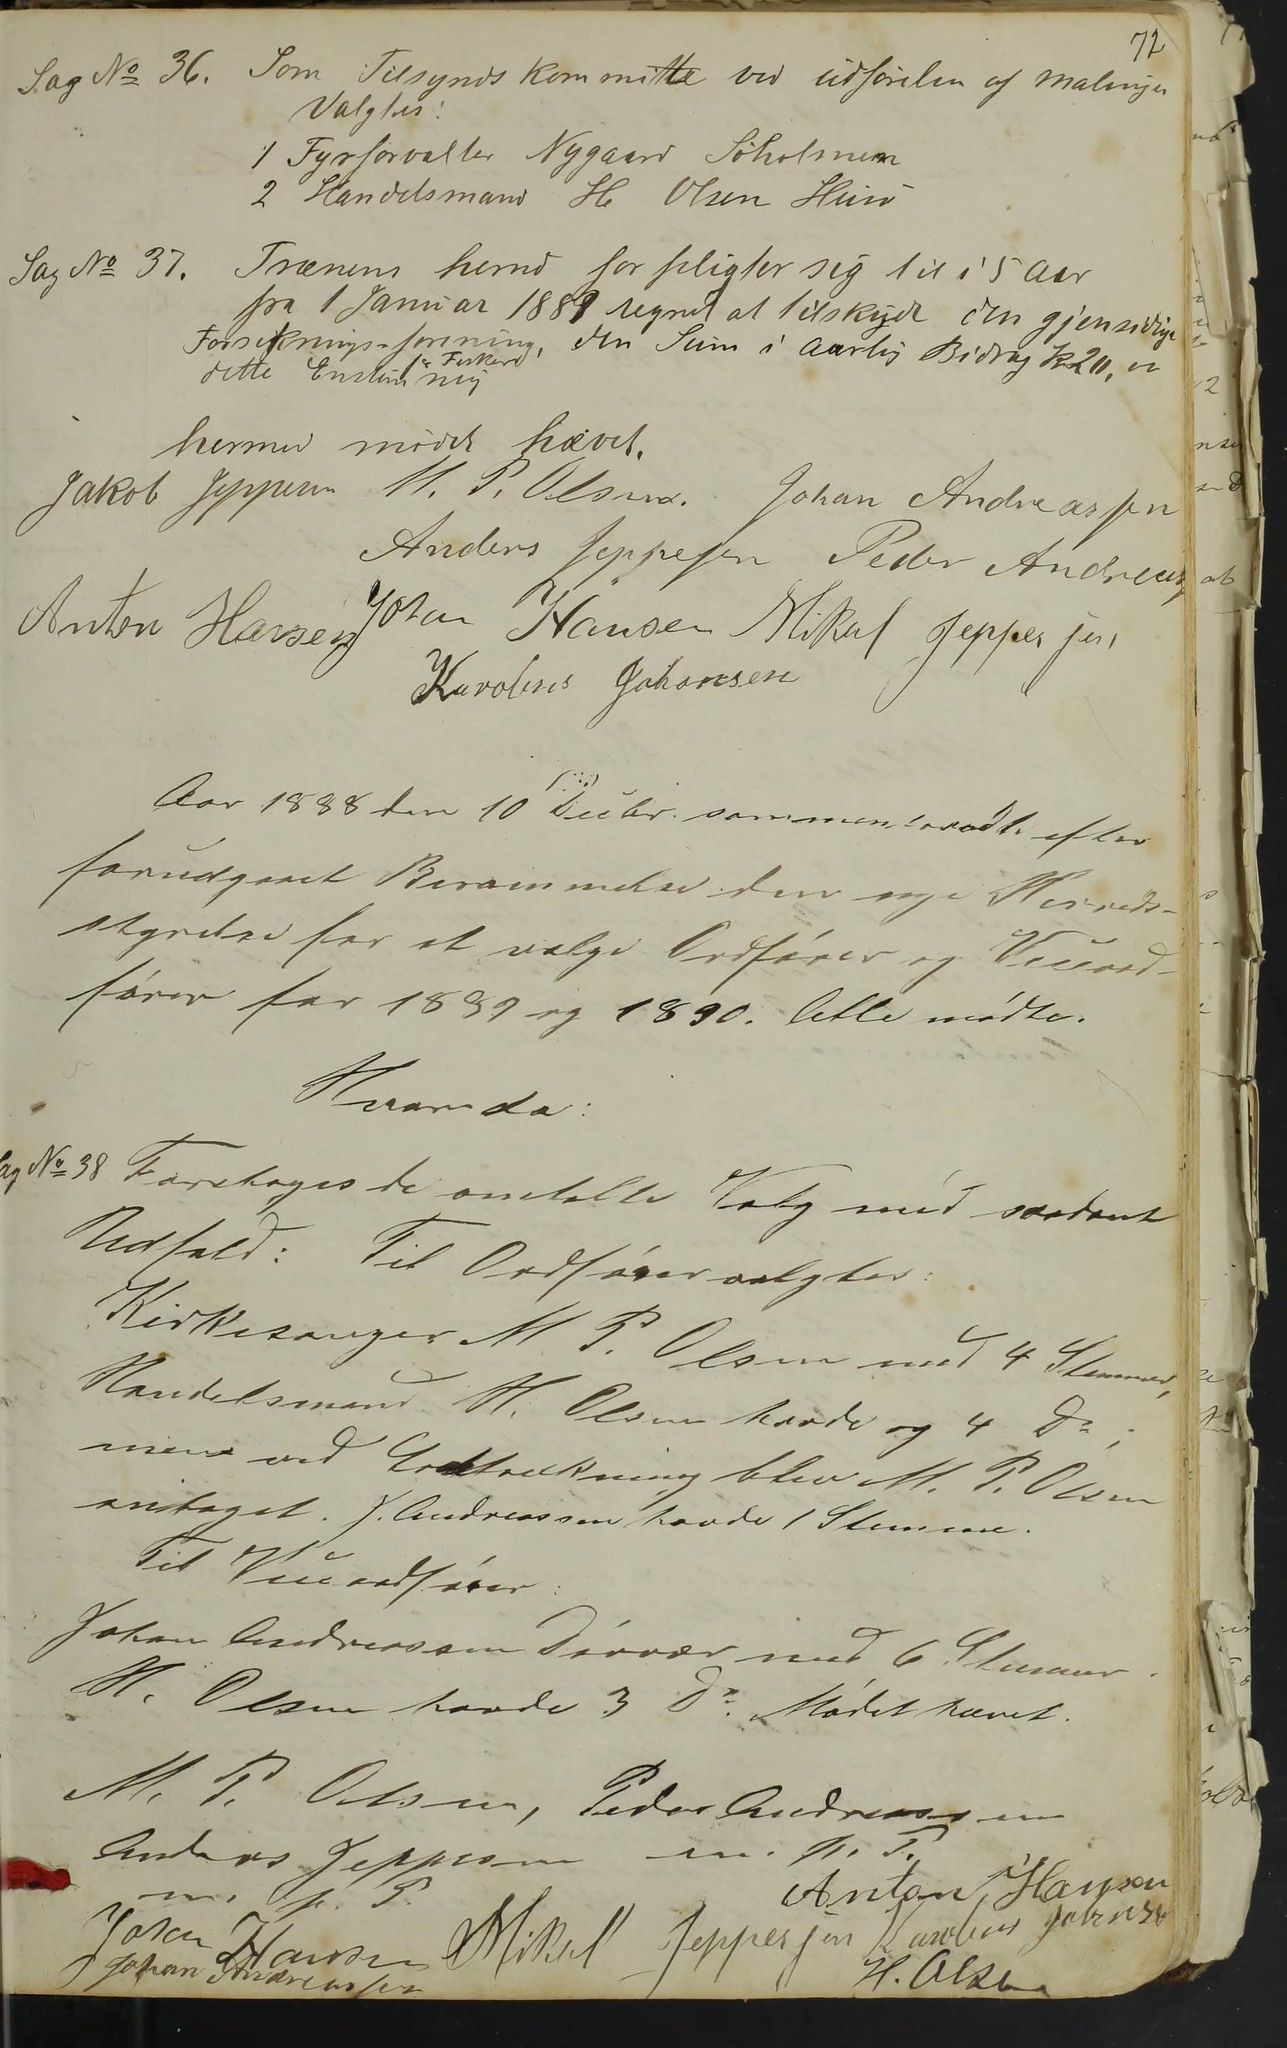 72
Sag No 36. Som Tilsyns kommitte ved udførelsen af malinger
Valgtes:
1 Fyrforvalter Nygaard Søholmen
2 Handelsmand H. Olsen Husø
Sag No 37. Trænens herred forpligter sig til i 5 Aar
fra 1 Januar 1889 regnet at tilskyde den gjensidige
Forsikrings-forening, den Sum i aarlig Bidrag Kr 20,
dette Enstemmig
for Fiskere
hermed mødet hævet.
Jakob Jeppesen M. P. Olsen. Johan Andreassen
Anders Jeppesen Peder Andreas
Anton Hansen Johan Hansen Mikal Jeppesen
Karolius Johansen
Aar 1888 den 10 Decbr. sammentraadte efter
forudgaaet Berammelse den nye Herreds-
styrelse for at vælge Ordfører og Viceord-
fører for 1889 og 1890. Alle mødte.
Hvorda:
Sag No 38 Foretoges de omtalte Valg med saadant
Udfald: Til Ordfører valgtes:
Kirkesanger M P. Olsen med 4 Stemmer,
Handelsmand H. Olsen havde og 4 Do;
men ved Lodtrækning blev M. P. Olsen
antaget. J. Andreassen havde 1 Stemme.
Til Viceordfører:
Johan Andreassen Dørvær med 6 Stemmer.
H. Olsen havde 3 Do. Mødet hævet.
M. P. Olsen, Peder Andreassen
Anders Jeppesen m. p. P.
m. p. P. Anton Hansen
Johan Hansen Mikal Jeppesen Karolius Johansen
Johan Andreassen H. Olsen